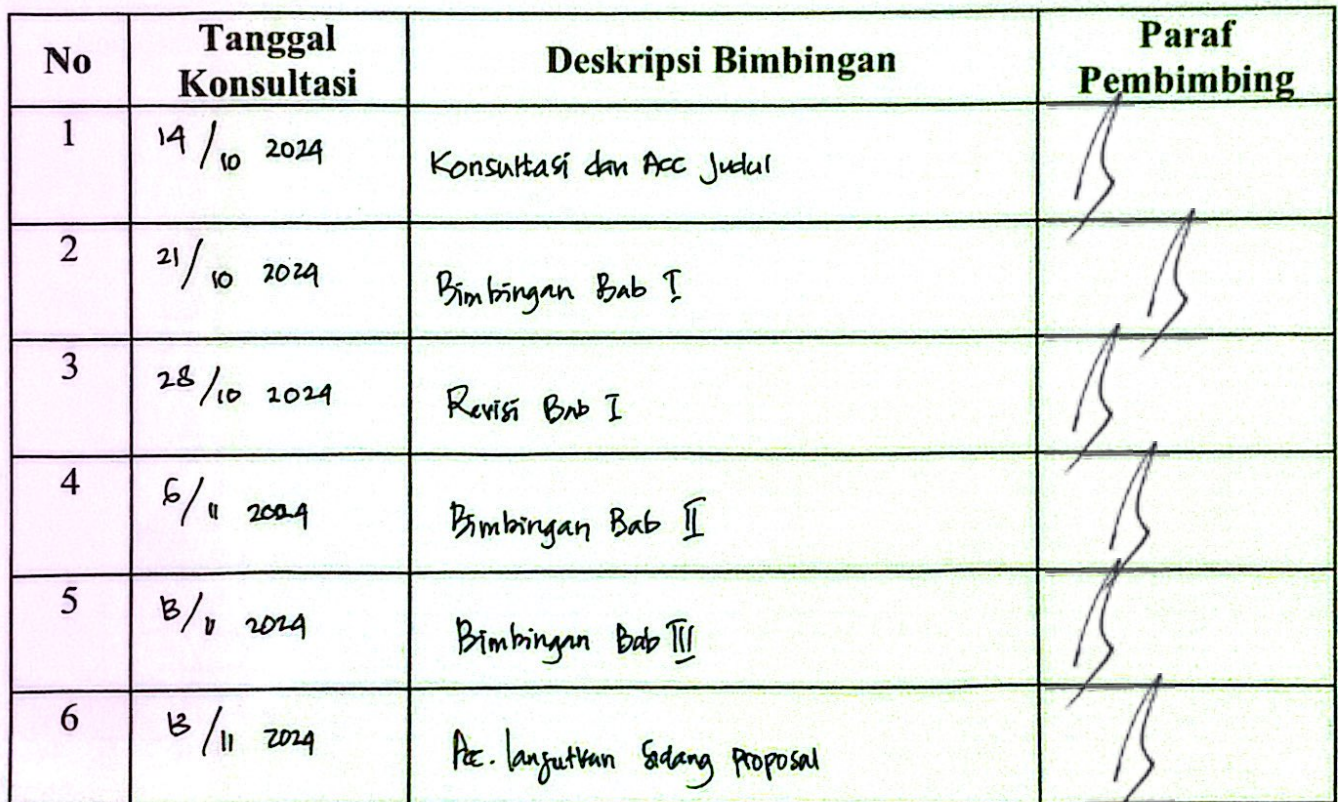 No Tanggal Konsultasi Deskripsi Bimbingan Paraf Pembimbing
1 14/10 2024 Konsultasi dan Acc Judul
2 21/10 2024 Bimbingan Bab I
3 28/10 2024 Revisi Bab I
4 /11 2024 Bimbingan Bab II
5 13/11 2024 Bimbingan Bab III
6 13/11 2024 Acc. lanjutkan Sidang Proposal